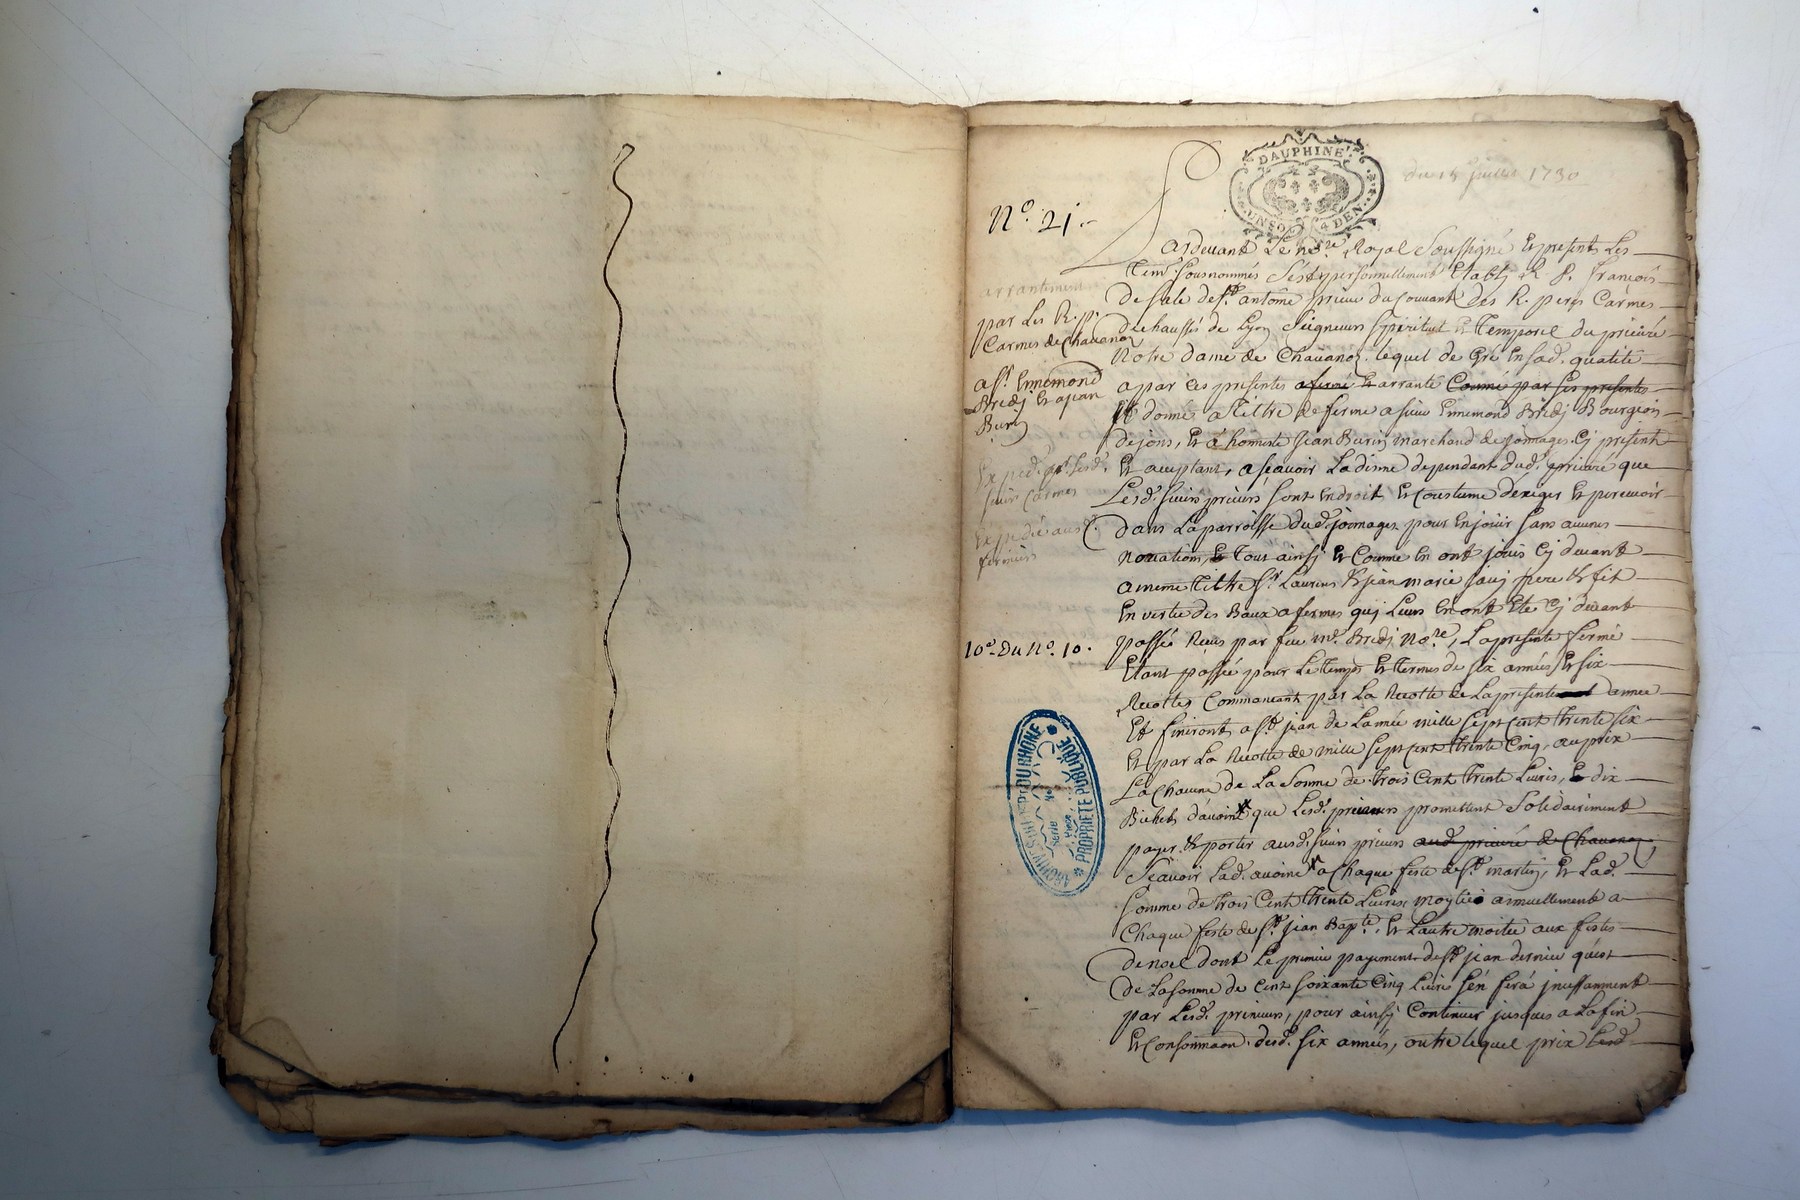 DAUPHINÉ
UN SOL 4 DEN.
du 15 juillet 1730
N.o 21.
Pardevant Le no.re Royal Soussigné Et presents Les
tem.s sousnommés S'est personnellement Etably R. P. françois
de sale de S.t antoine prieur du Couvant des R. peres Carmes
dechaussés de Lyon Seigneurs Spirituel Et Temporel du prieuré
Notre dame de Chavanoz lequel de Gré En sad. qualité
a par ces presentes afermé Et arranté Comme par ses presentes
Et donne a titre de ferme a sieur Ennemond Bredy Bourgeois
de jons, Et a honneste Jean Burin marchand de jonnages Cy present
Et aceptant, a scavoir La dixme dependant dud. prieuré que
Lesd. sieurs prieurs sont En droit Et Coustume d'exiger Et percevoir
dans La parroisse dud. jonnages pour En jouir sans aucunes
Novations, Et Tout ainsy Et Comme En ont jouis Cy devant
a meme Titre S.r Laurens Et jean marie jauy pere Et fils
En vertu des Baux a fermes quy Leurs En ont Eté Cy devant
passés Recus par feu m.e Bredy No.re, La presente ferme
Etant passée pour Le Temps Et termes de six années Et six
Recoltes Commancant par La Recolte de La presente annee
Et finiront a S.t jean de L'année mille sept cent trente six
Et par La Recolte de mille sept cent trente Cinq, au prix
La Chacune de La Somme de trois Cent trente Livres, Et dix
Bichets d'avoine que Lesd. preneurs promettent Solidairement
payer Et porter ausd. sieurs prieurs aud. prieuré de Chavanoz,
Scavoir Lad. avoine a Chaque feste de S.t martin, Et Lad.
somme de trois Cent trente Livres moytié annuellement a
Chaque feste de S.t jean Bap.te, Et L'autre moitié aux festes
de noel dont Le premier payement de S.t jean dernier qu'est
de La somme de Cent soixante Cinq Livres s'en fera incessamment
par Lesd. preneurs, pour ainsy Continuer jusques a La fin
Et Consommaon desd. six années, outre lequel prix Lesd.
arrantement
par Les R. p.
Carmes de Chavanoz
a S.r Ennemond
Bredy Et a jean
Burin
Expedié aux d.
sieurs Carmes
Expedié aux
fermiers
10.e Du N.o 10.
ARCHIVES DU DEP.T DU RHÔNE
PROPRIÉTÉ PUBLIQUE
Série